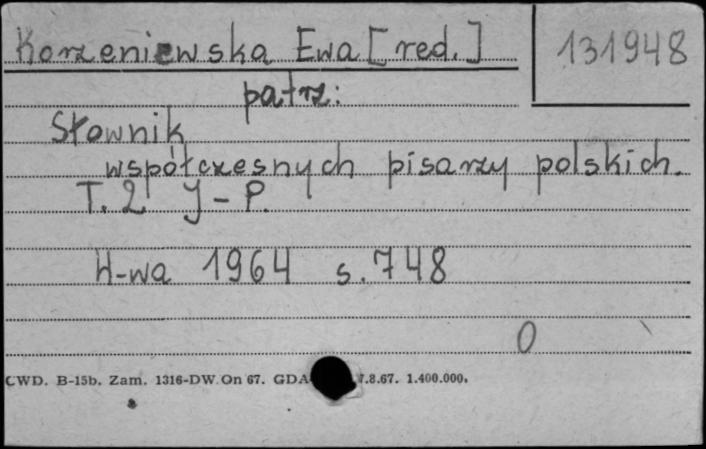 Korzeniewska Ewa [red.]
131948
patrz:
Słownik
współczesnych pisarzy polskich.
T. 2 J-P.
W-wa 1964 s. 748
0
CWD. B-15b. Zam. 1316-DW. On 67. GDA 7.8.67. 1.400.000.